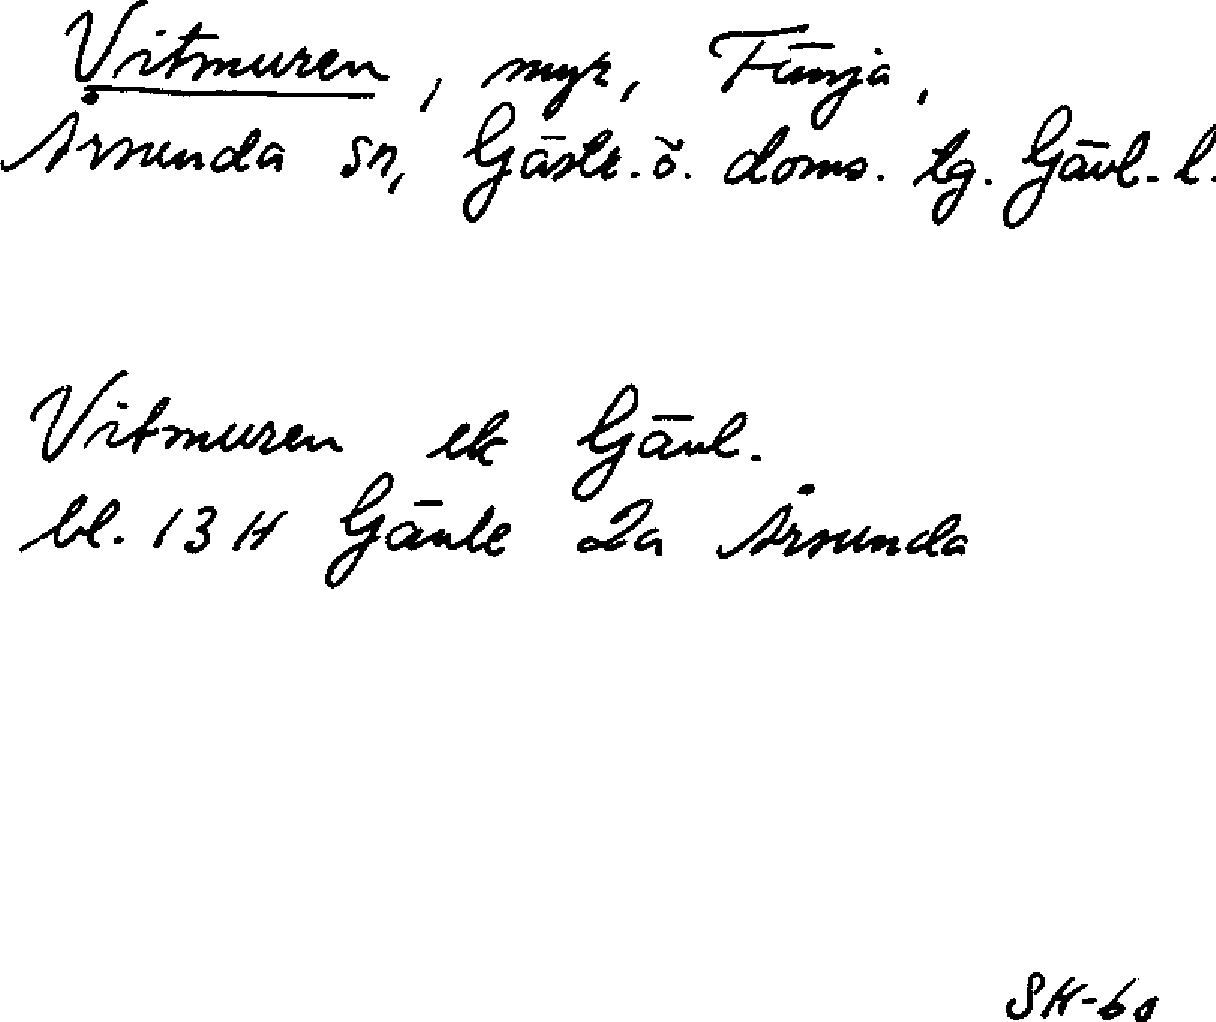 Vitmuren, myr, Fänja,
Årsunda sn, Gästr. ö. doms. tg. Gävl. l.
Vitmuren ek Gävl.
bl. 13 H Gävle 2a Årsunda
SH-60